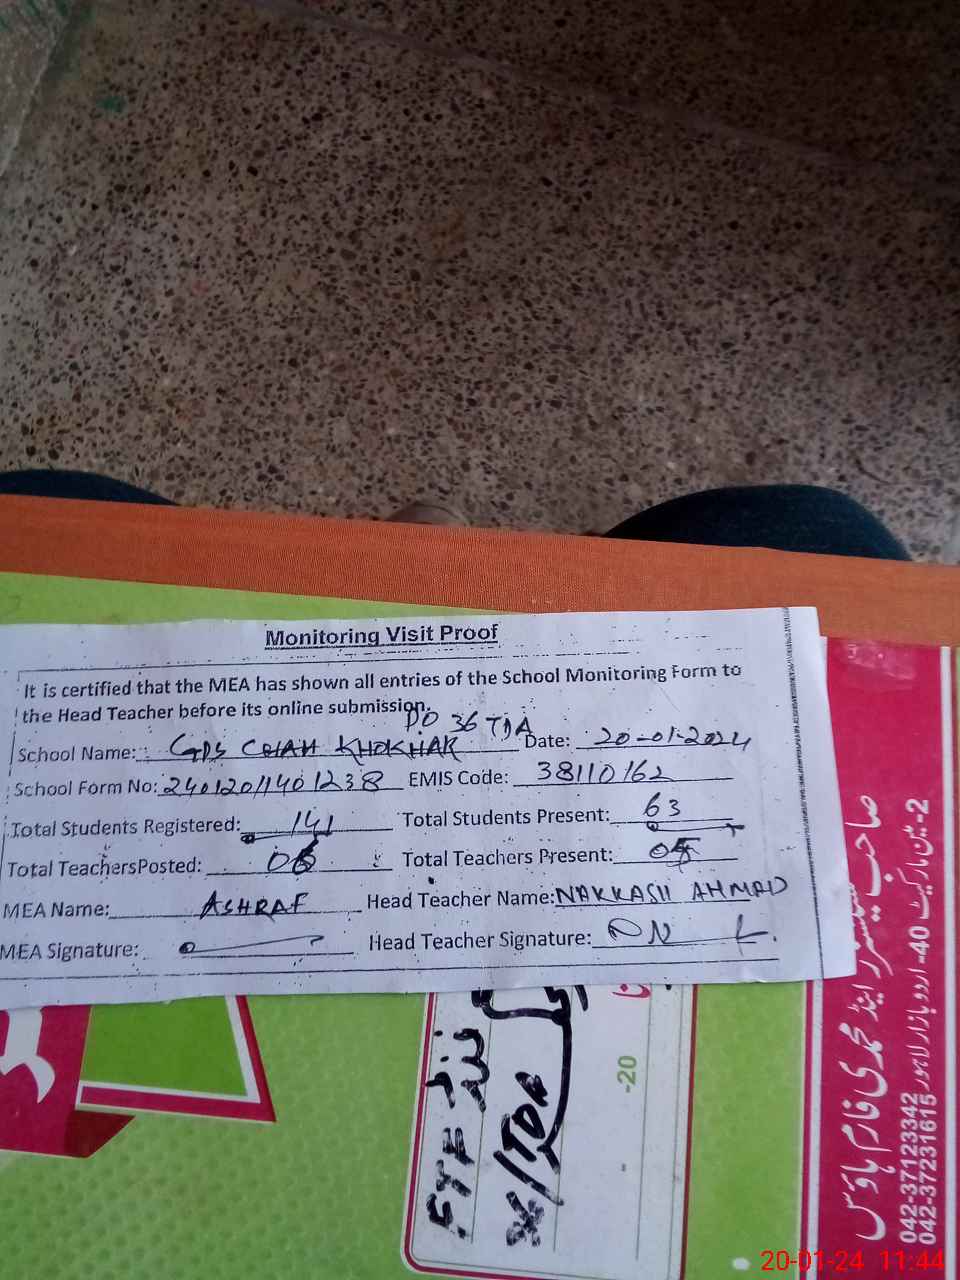 Monitoring Visit Proof
It is certified that the MEA has shown all entries of the School Monitoring Form to
the Head Teacher before its online submission.
PO 36 TDA
School Name: GPS CHAH KHOKHAR Date: 20-01-2024
School Form No: 24012011401238 EMIS Code: 38110162
Total Students Registered: 141 Total Students Present: 63
Total TeachersPosted: 06 Total Teachers Present:
MEA Name: ASHRAF Head Teacher Name: NAKKASH AHMAD
MEA Signature: Head Teacher Signature:
FTF فنڈ
36/TDA
-20
صاحب سنز اینڈ محمدی فارم ہاؤس
2-مین مارکیٹ 40-اردو بازار لاہور
042-37123342
042-37231615
20-01-24 11:44